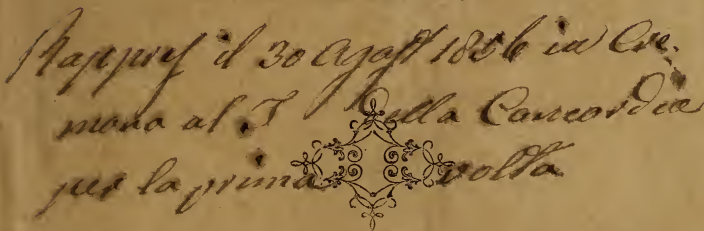 Rappres il 30 Agost 1856 in Cre:
mona al T della Concordia
per la prima volta